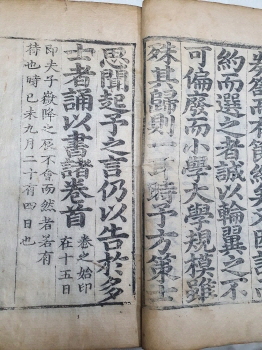 約而選之者誠以輪翼之不
可偏廢而小學大學規模雖
殊其歸則一耳時予方策士
思聞起予之言仍以告於多
士者誦以書諸卷首
卷之始印
在十五日
即夫子嶽降之辰不會而然者若有
待也時己未九月二十有四日也